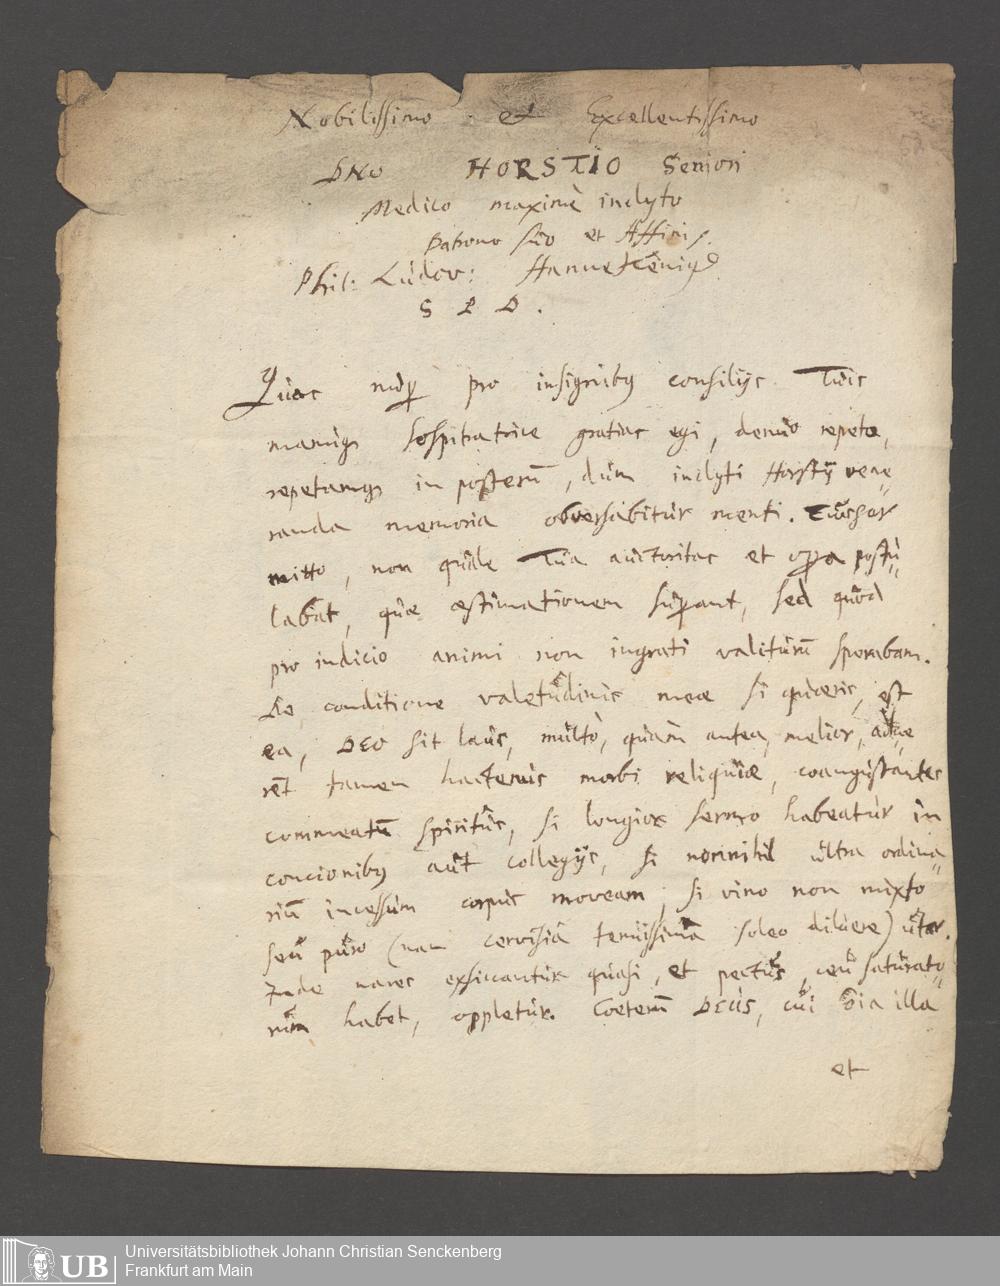 Nobilissimo et Excellentissimo
DNo HORSTIO Seniori
Medico maximè inclyto
Patrono suo et Affini
Phil: Ludov: Hanneken
S P D.
Quas nup pro insignibq consilijs Tuis
manuq sospitatrice gratias egi, denuo repeto,
repetamq in posterũ, dum inclyti Horstij vene„
randa memoria obversabitur menti.
mitto, non quale Tua auctoritas et opa postu„
labat, quae aestimationem supant, sed quod
pro indicio animi non ingrati valiturũ sperabam.
De conditione valetudinis meae si quaeris, est
ea, DEO sit laus, multò, quàm antea, melior, adhae„
rẽt tamen hactenus morbi reliquiae, coangustantes
commeatũ spiritûs, si longior sermo habeatur in
concionibq aut collegijs, si nonnihil ultra ordina„
riũ incessum corpus moveam, si vino non mixto
seu puro (nam cervisiâ tenuissimâ soleo diluere) utar.
Inde nares exsiccantur quasi, et pectus, ceu saturato„
rium habet, oppletur. Coeterũ DEUS, cui õia illa
et
Universitätsbibliothek Johann Christian Senckenberg
Frankfurt am Main
UB